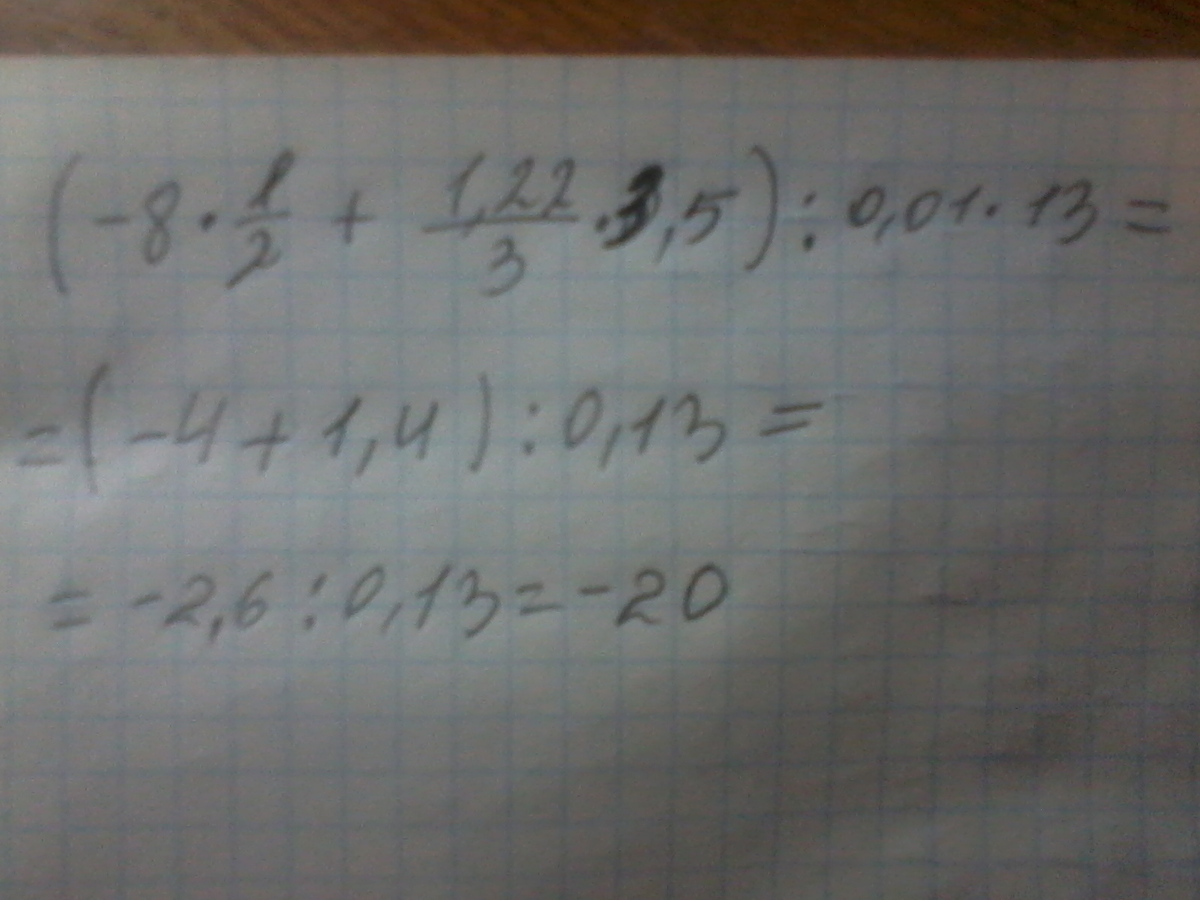 (-8·1/2 + 1,22/3·3,5):0,01·13=
=(-4+1,4):0,13=
=-2,6:0,13=-20